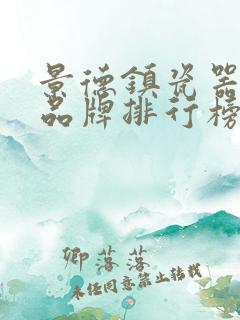 景德鎮瓷器
品牌排行榜
卿落落
未经同意禁止转载